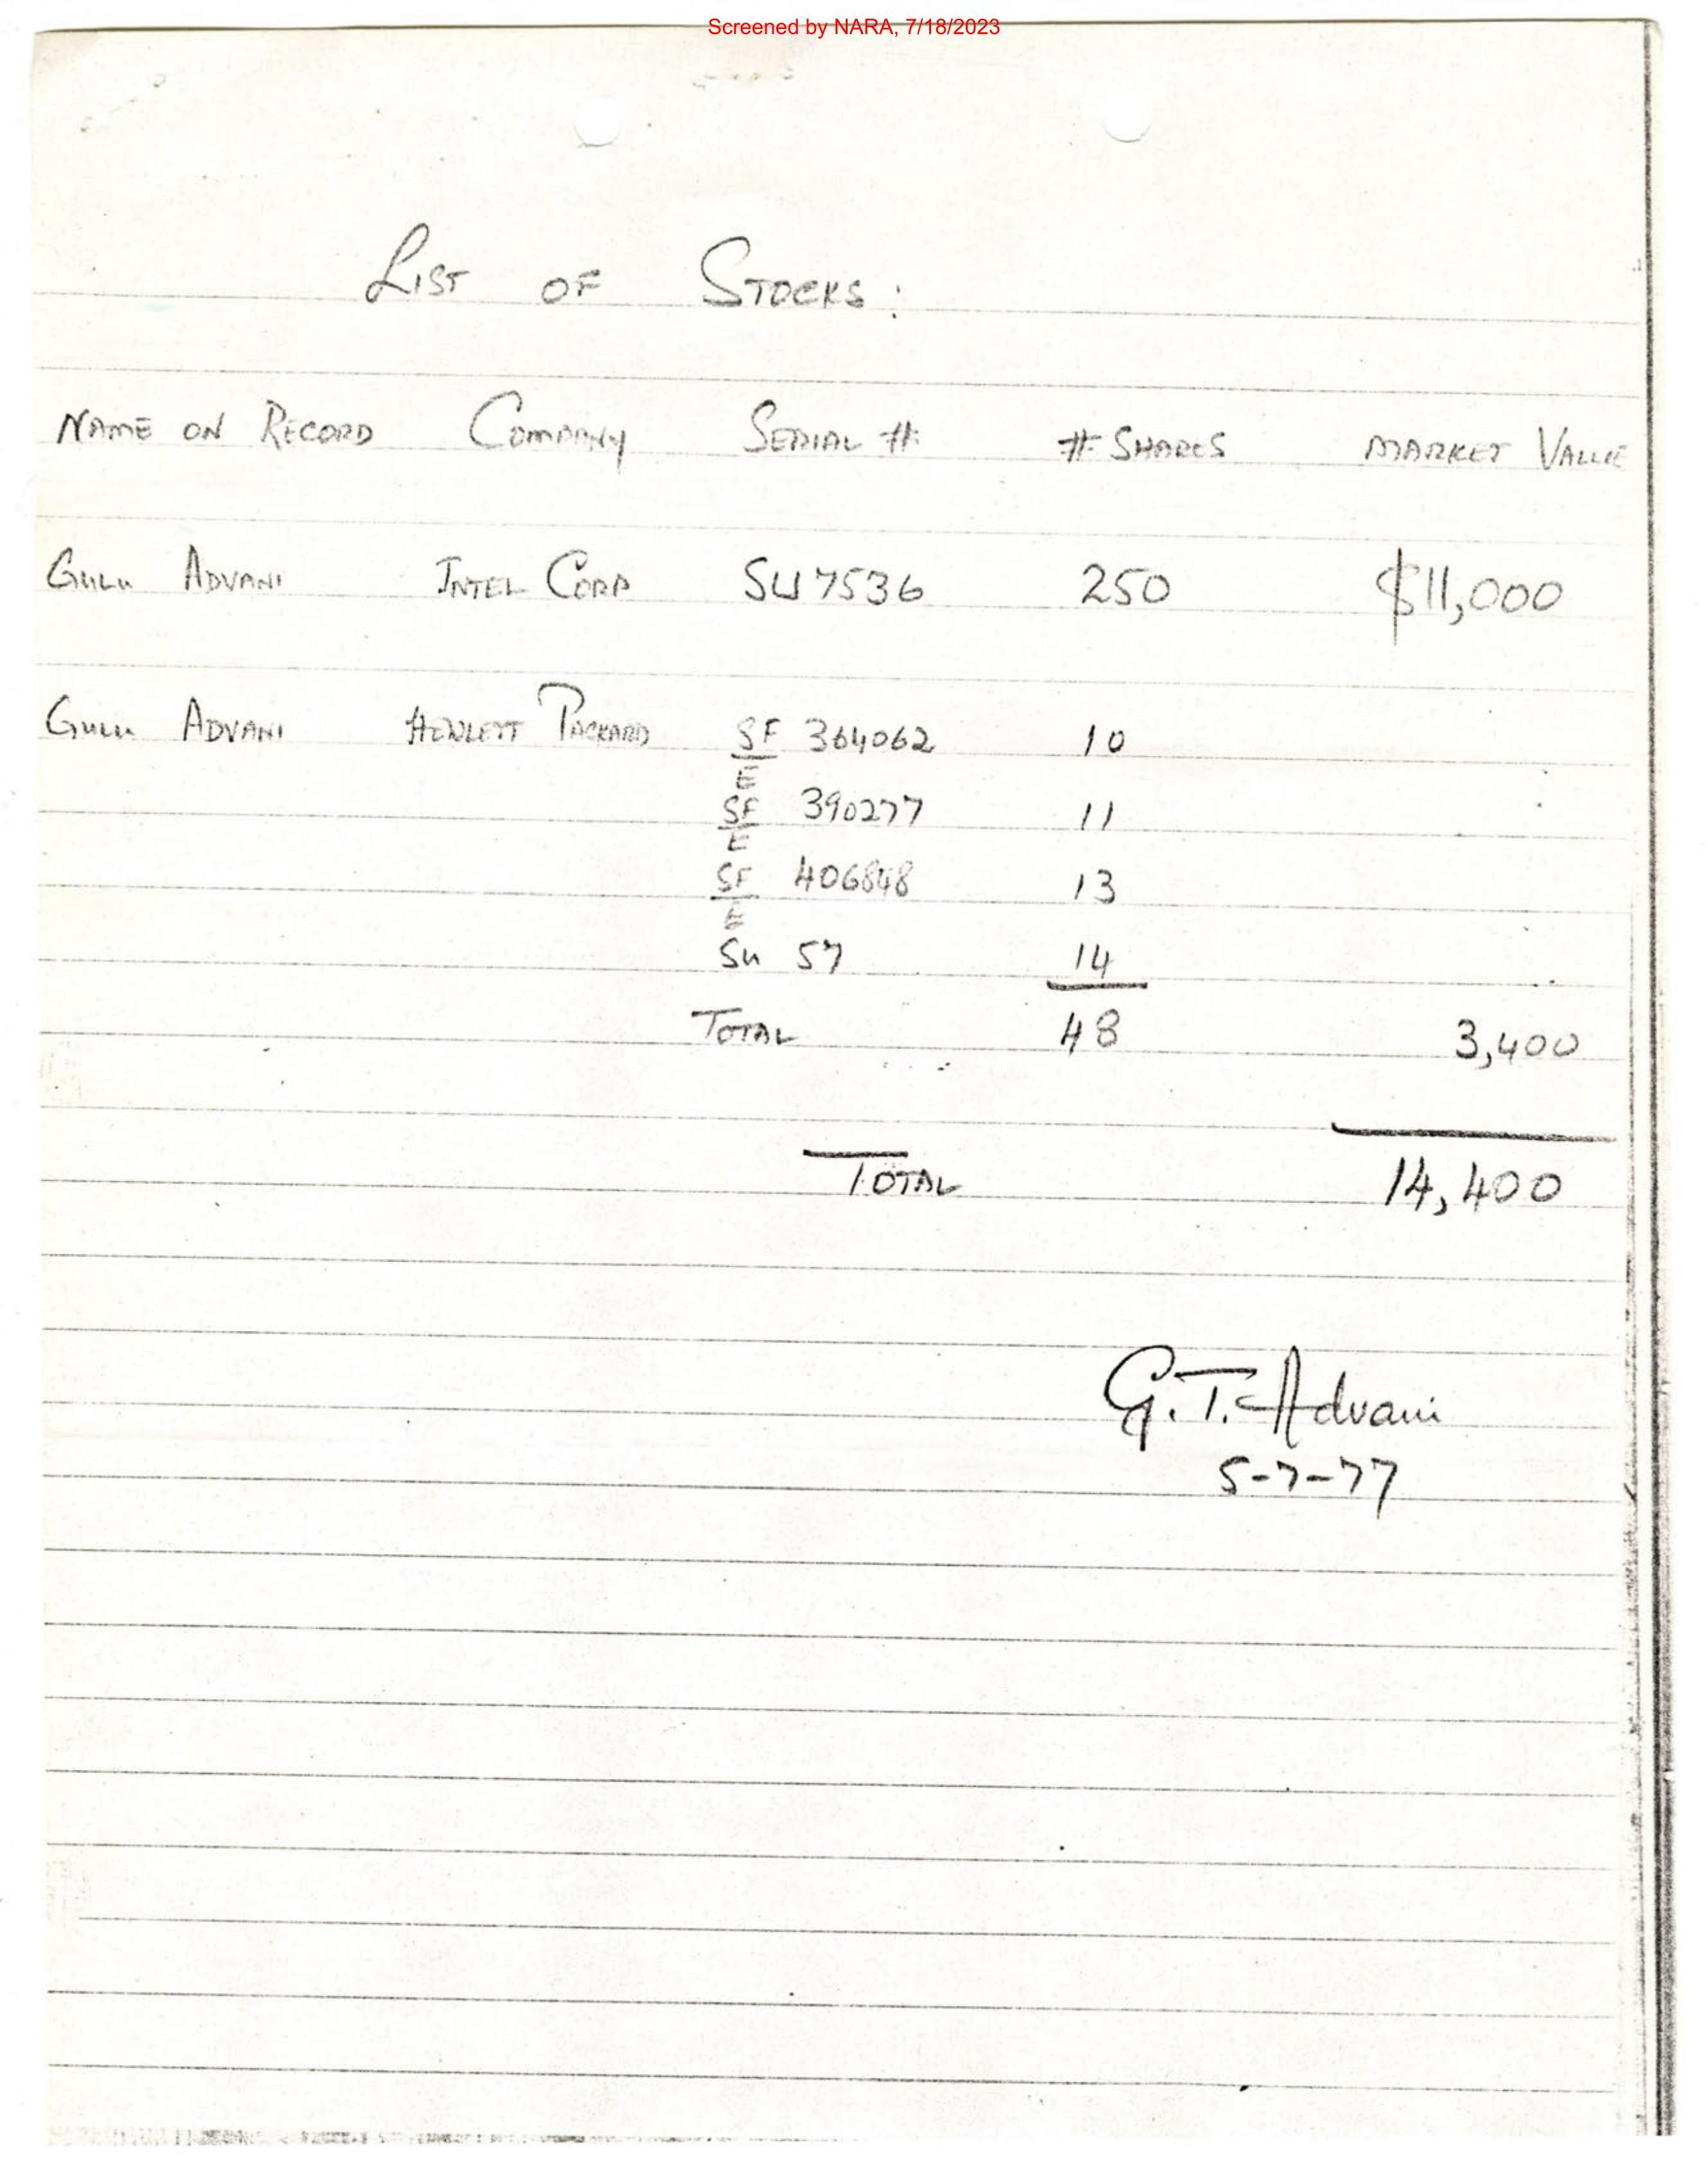 Screened by NARA, 7/18/2023
LIST OF STOCKS:
NAME ON RECORD COMPANY SERIAL # # SHARES MARKET VALUE
GULU ADVANI INTEL CORP SU 7536 250 $11,000
GULU ADVANI HEWLETT PACKARD SF 364062 10
E
SF 390277 11
E
SF 406848 13
E
SU 57 14
TOTAL 48 3,400
TOTAL 14,400
G.T. Advani
5-7-77